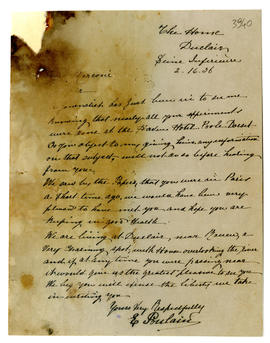 3940
The Home
Duclair
Seine Inferieure
2.16.36
Marconi
journalist has just been in to see me
knowing that nearly all your experiments
were done at the Haven Hotel Poole Dorset
Do you object to my giving him any information
on that subject, will not do so before hearing
from you.
We saw by the Papers, that you were in Paris
a short time ago, we would have been very
pleased to have met you, and hope you are
keeping in good health
We are living at Duclair, near Rouen, a
very charming spot, with House overlooking the
and if at any time you were passing near
it would give us the greatest pleasure to see you
the boy you will excuse the liberty we take
in writing you
Yours Very Respectfully
E Poulain